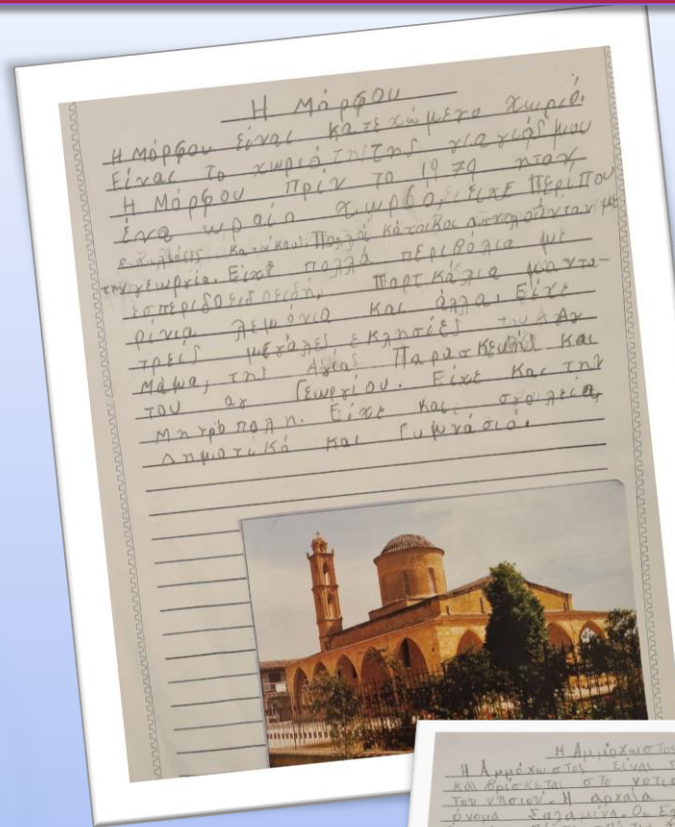 Η Μόρφου
Η Μόρφου είναι κατεχώμενο χωριό.
Είναι το χωριό της της γιαγιάς μου
Η Μόρφου πρίν το 1974 ήταν
ένα ωραίο χωριό, είχε περίπου
χιλιάδες κατοίκου. Πολλά κάτοικοι ασχολούνταν με
την γεωργία. Είχε πολλά περιβόλια με
εσπεριδοειδοειδή, πορτκάλια μαντα-
ρίνια λεμόνια και άλλα. Είχε
τρείς μεγάλες εκλησίες του Αγ
Μάμα, της Αγίας Παρασκευής και
του αγ Γεωργίου. Είχε και την
Μητρόπολη. Είχε και σχολεία,
Δημοτικό και Γυμνάσιο.
Η Αμμόχωστος
Η Αμμόχωστος είναι
και βρίσκεται στο
του νησιού. Η αρχαία
όνομα Σαλαμίνα. Οι